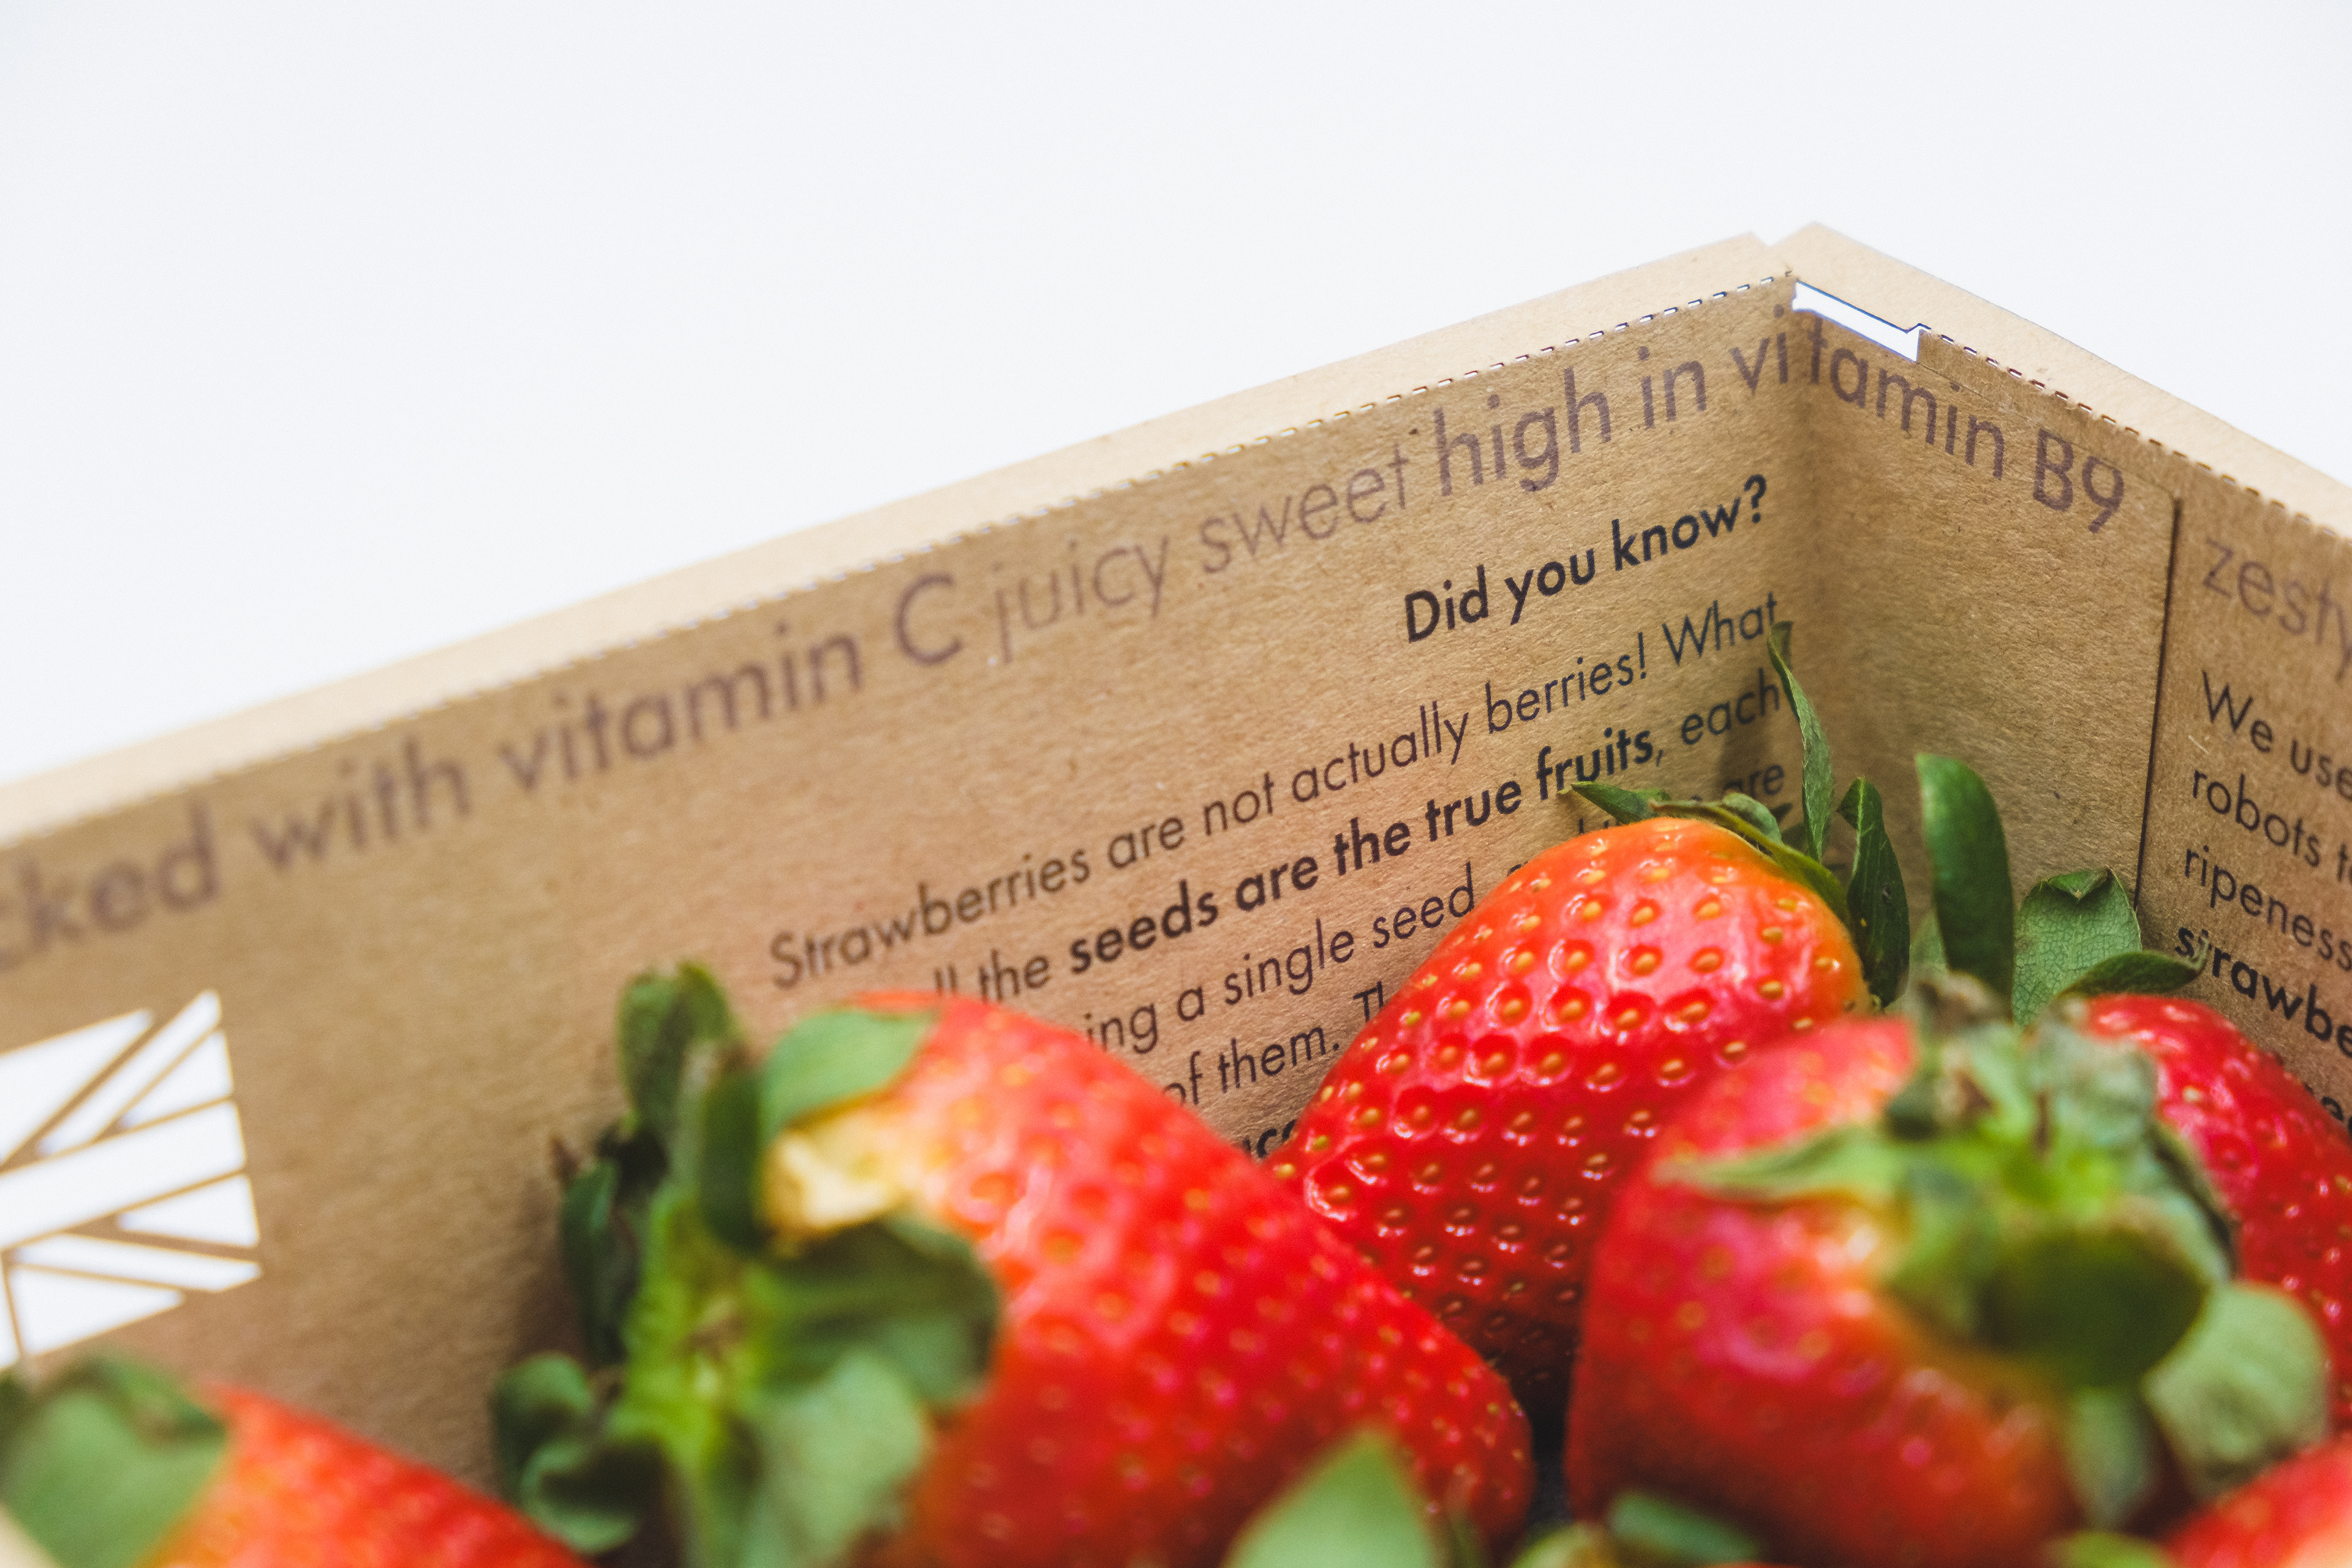 cked with vitamin C juicy sweet high in vitamin B9
zesty
Did you know?
Strawberries are not actually berries! What
the seeds are the true fruits, each
ing a single seed
are
of them.
We use
robots
ripeness
strawbe